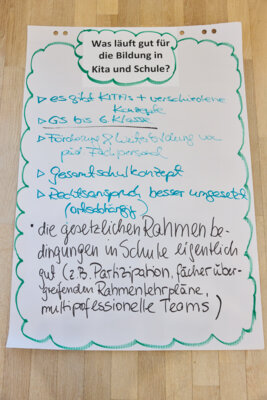 Was läuft gut für
die Bildung in
Kita und Schule?
▷ es gibt KITAs + verschiedene
Konzepte
▷ GS bis 6. Klasse
▷ Förderung & Weiterbildung von
päd. Fachpersonal
▷ Gesamtschulkonzept
▷ Rechtsanspruch besser umgesetzt
(ortsabhängig)
• die gesetzlichen Rahmenbe-
dingungen in Schule eigentlich
gut (z.B. Partizipation, fächerüber-
greifenden Rahmenlehrpläne,
multiprofessionelle Teams)